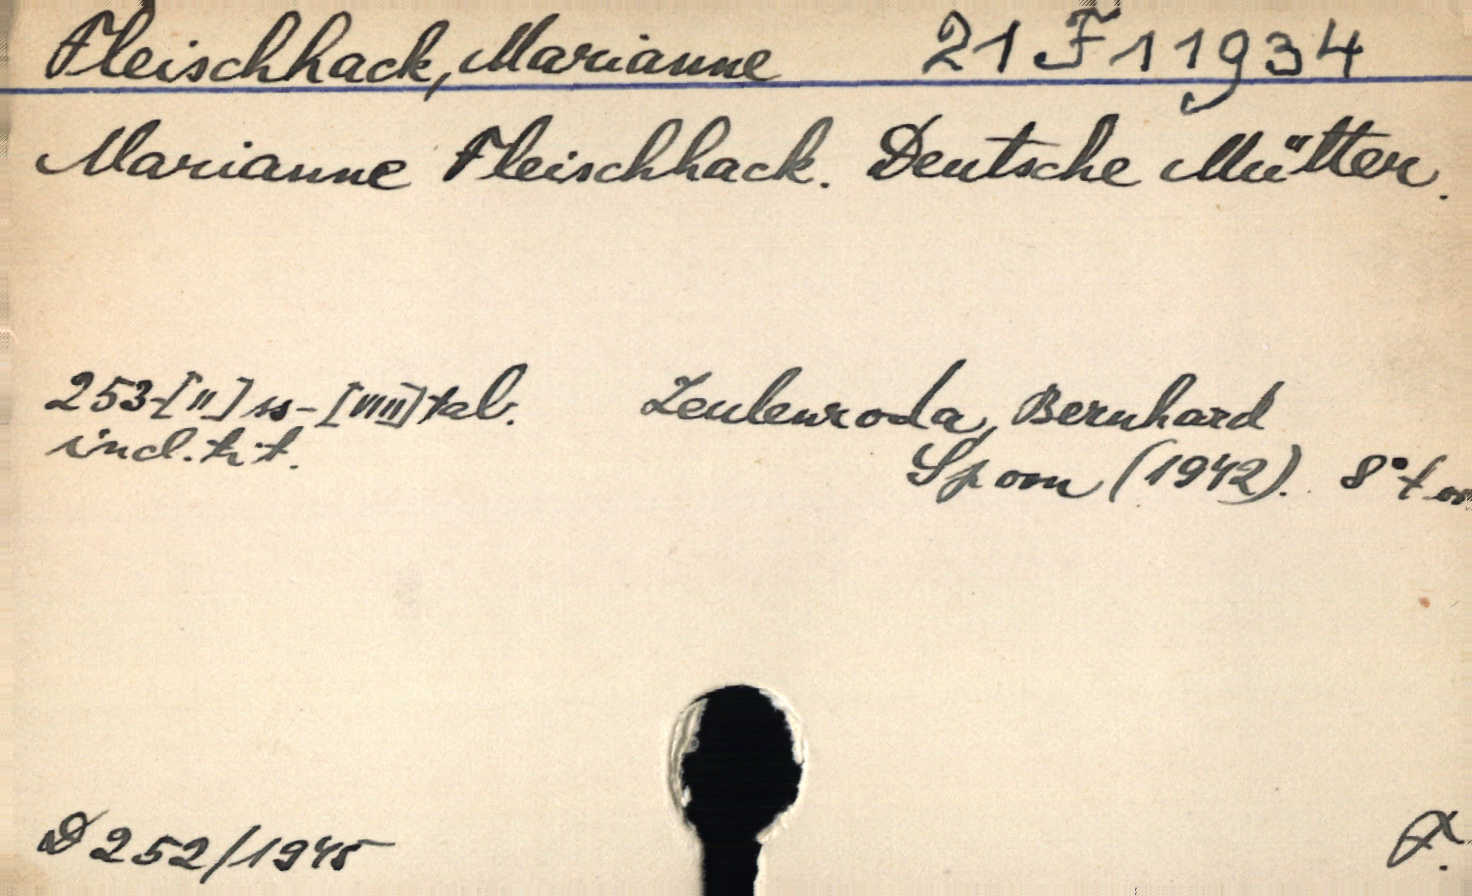 Fleischhack, Marianne 21 F 11934
Marianne Fleischhack. Deutsche Mütter.
253-[II] ss-[VIII] tab. Zeulenroda, Bernhard
incl. tit. Sporn (1942). 8°
D 252/1945